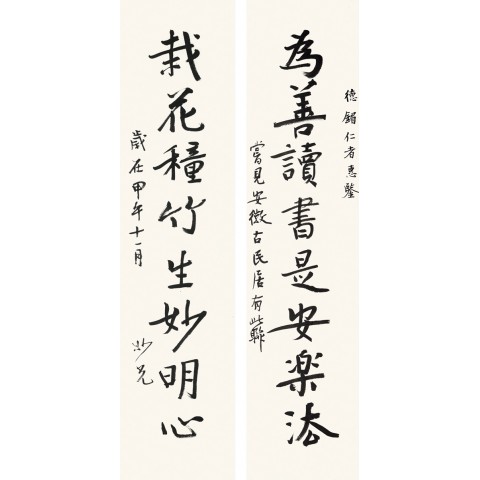 德鏘仁者惠鑒
為善讀書是安樂法
嘗見安徽古民居有此聯
栽花種竹生妙明心
歲在甲午十一月